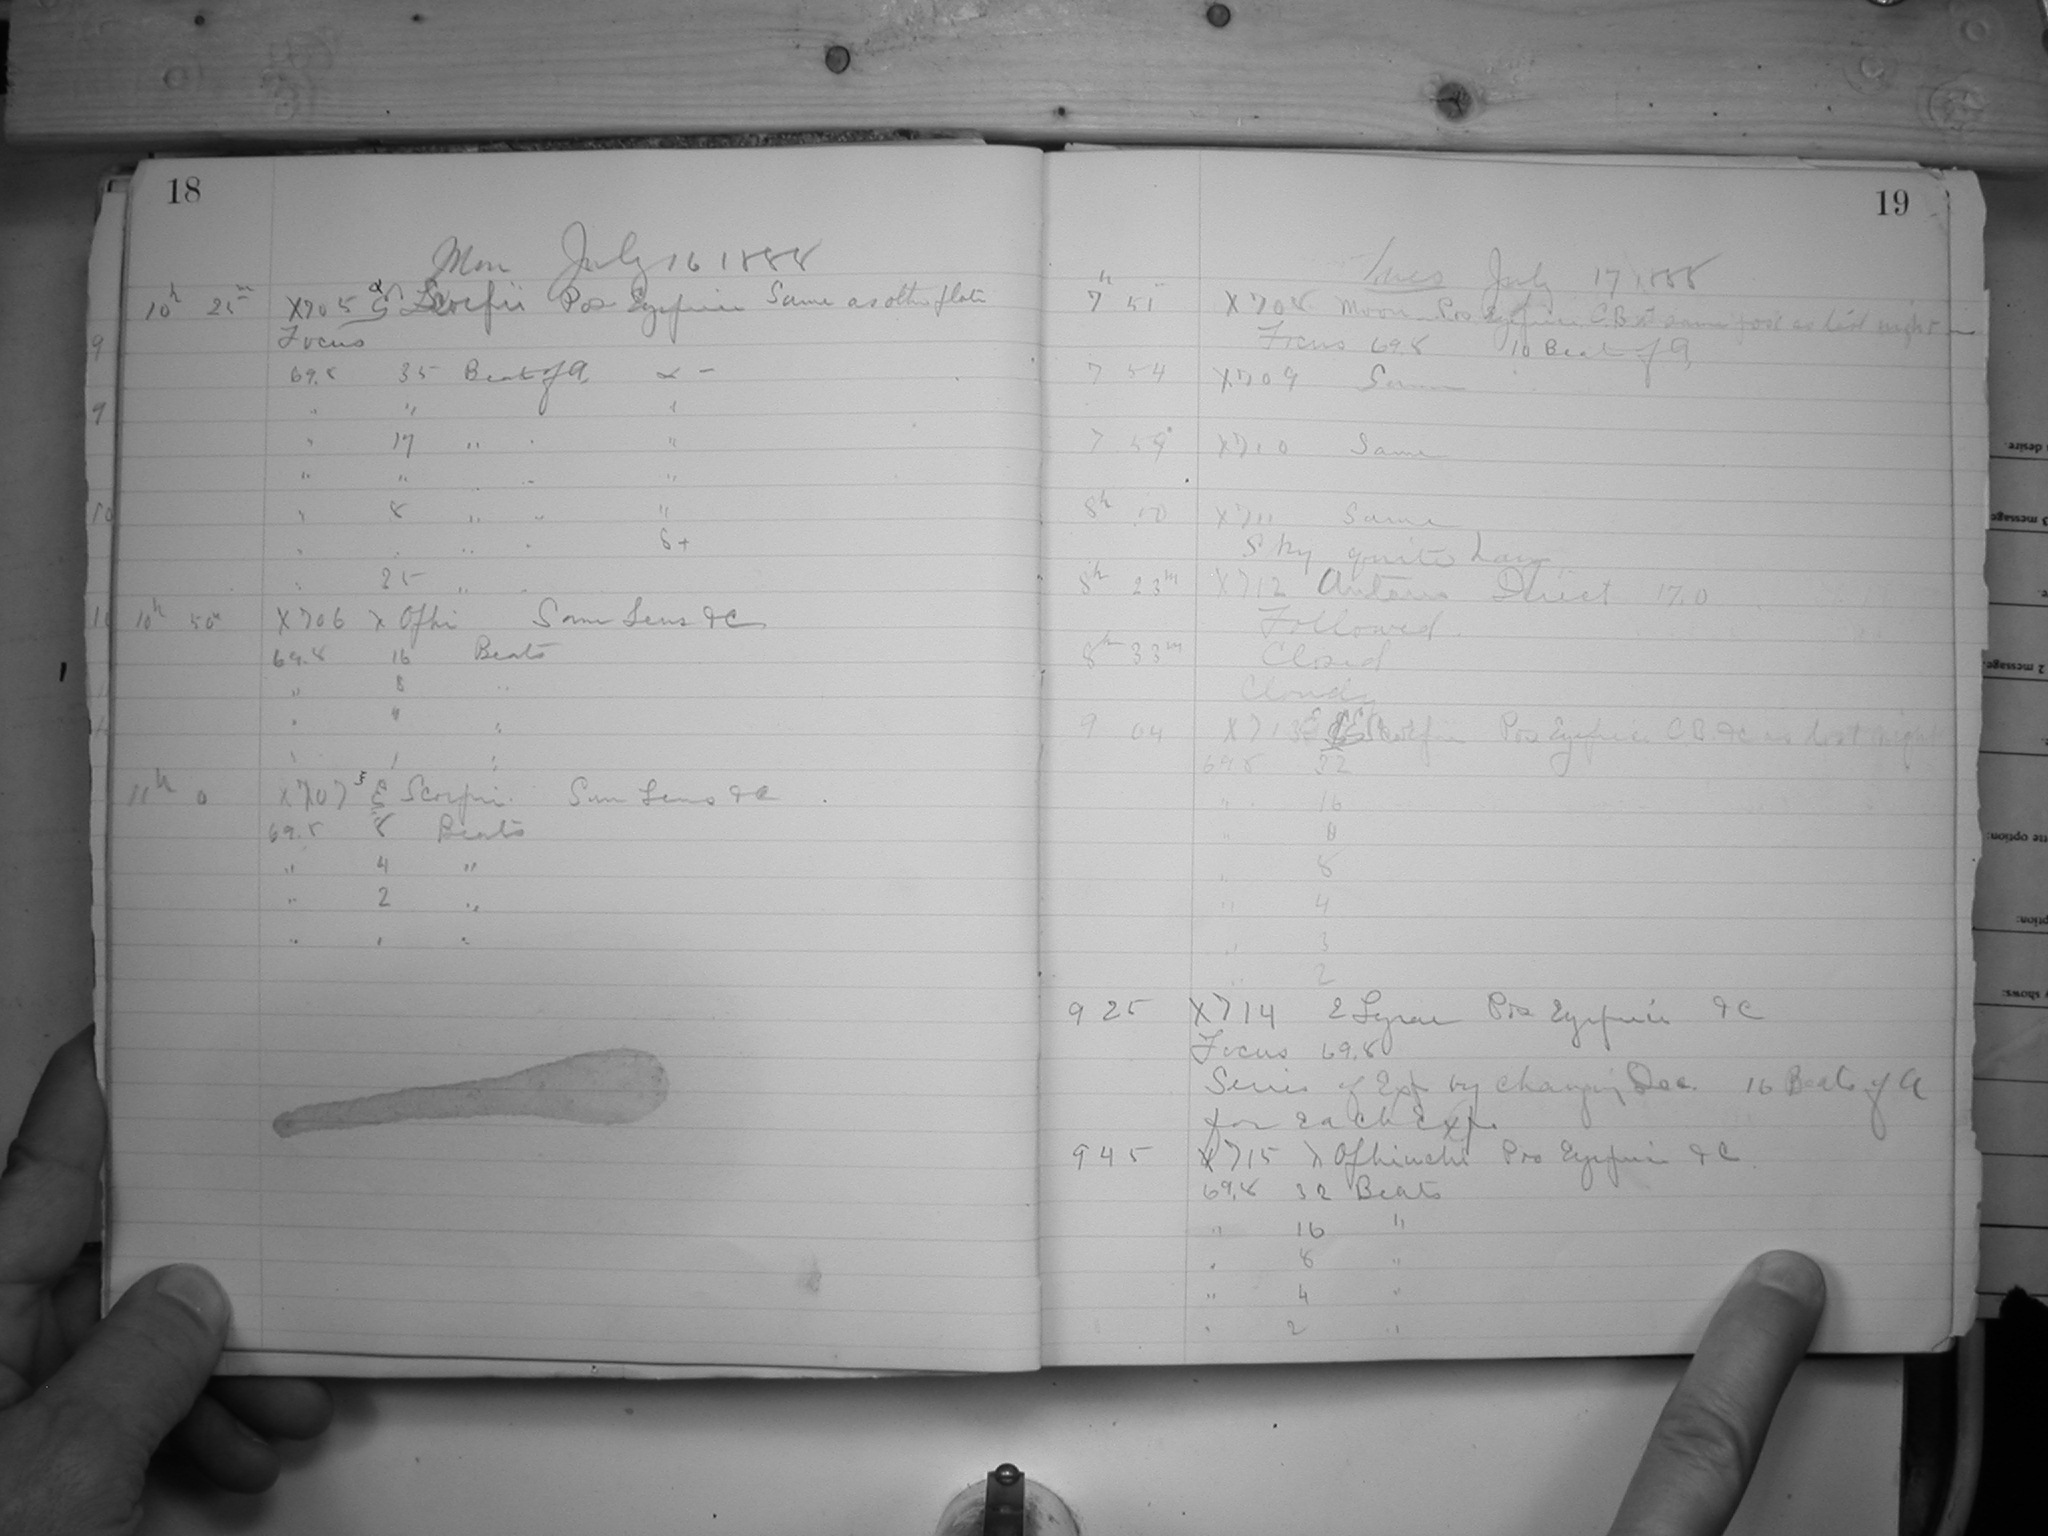 18
Mon July 16 1888
10h 25m X705 Scorpii Pos Eyepiece Same as other plate
Focus
9
69.8 35 Beat of a α -
9
" "
" 17 " " "
" " " " "
10
" 8 " " "
" " " " δ+
" 25 " "
10h 50m X706 λ Ophi Same Lens &C
69.8 16 Beats
" 8 "
" 4 "
" " "
11h 0 X707 ξ Scorpii Same Lens &C
69.8 8 Beats
" 4 "
" 2 "
" " "
19
Tues July 17 1888
7h 51 X708 Moon Pos Eyepiece C.B. same post as last night
Focus 69.8 10 Beat of a
7 54 X709 Same
7 59 X710 Same
8h 10 X711 Same
Sky quite hazy
8h 23m X712 Antares Direct 17.0
Followed
8h 33m Closed
Clouds
9 04 X713 ξ Scorpii Pos Eyepiece C.B. &c as last night
69.8 32
" 16
" 8
" 8
" 4
" 3
" 2
9 25 X714 ε Lyrae Pos Eyepiece &C
Focus 69.8
Series of Exp by changing Dec. 16 Beats of a
for Each Exp.
9 45 X715 λ Ophiuchi Pos Eyepiece &C
69.8 32 Beats
" 16 "
" 8 "
" 4 "
" 2 "
desire.
3 message
2 message.
option:
ption:
shows: